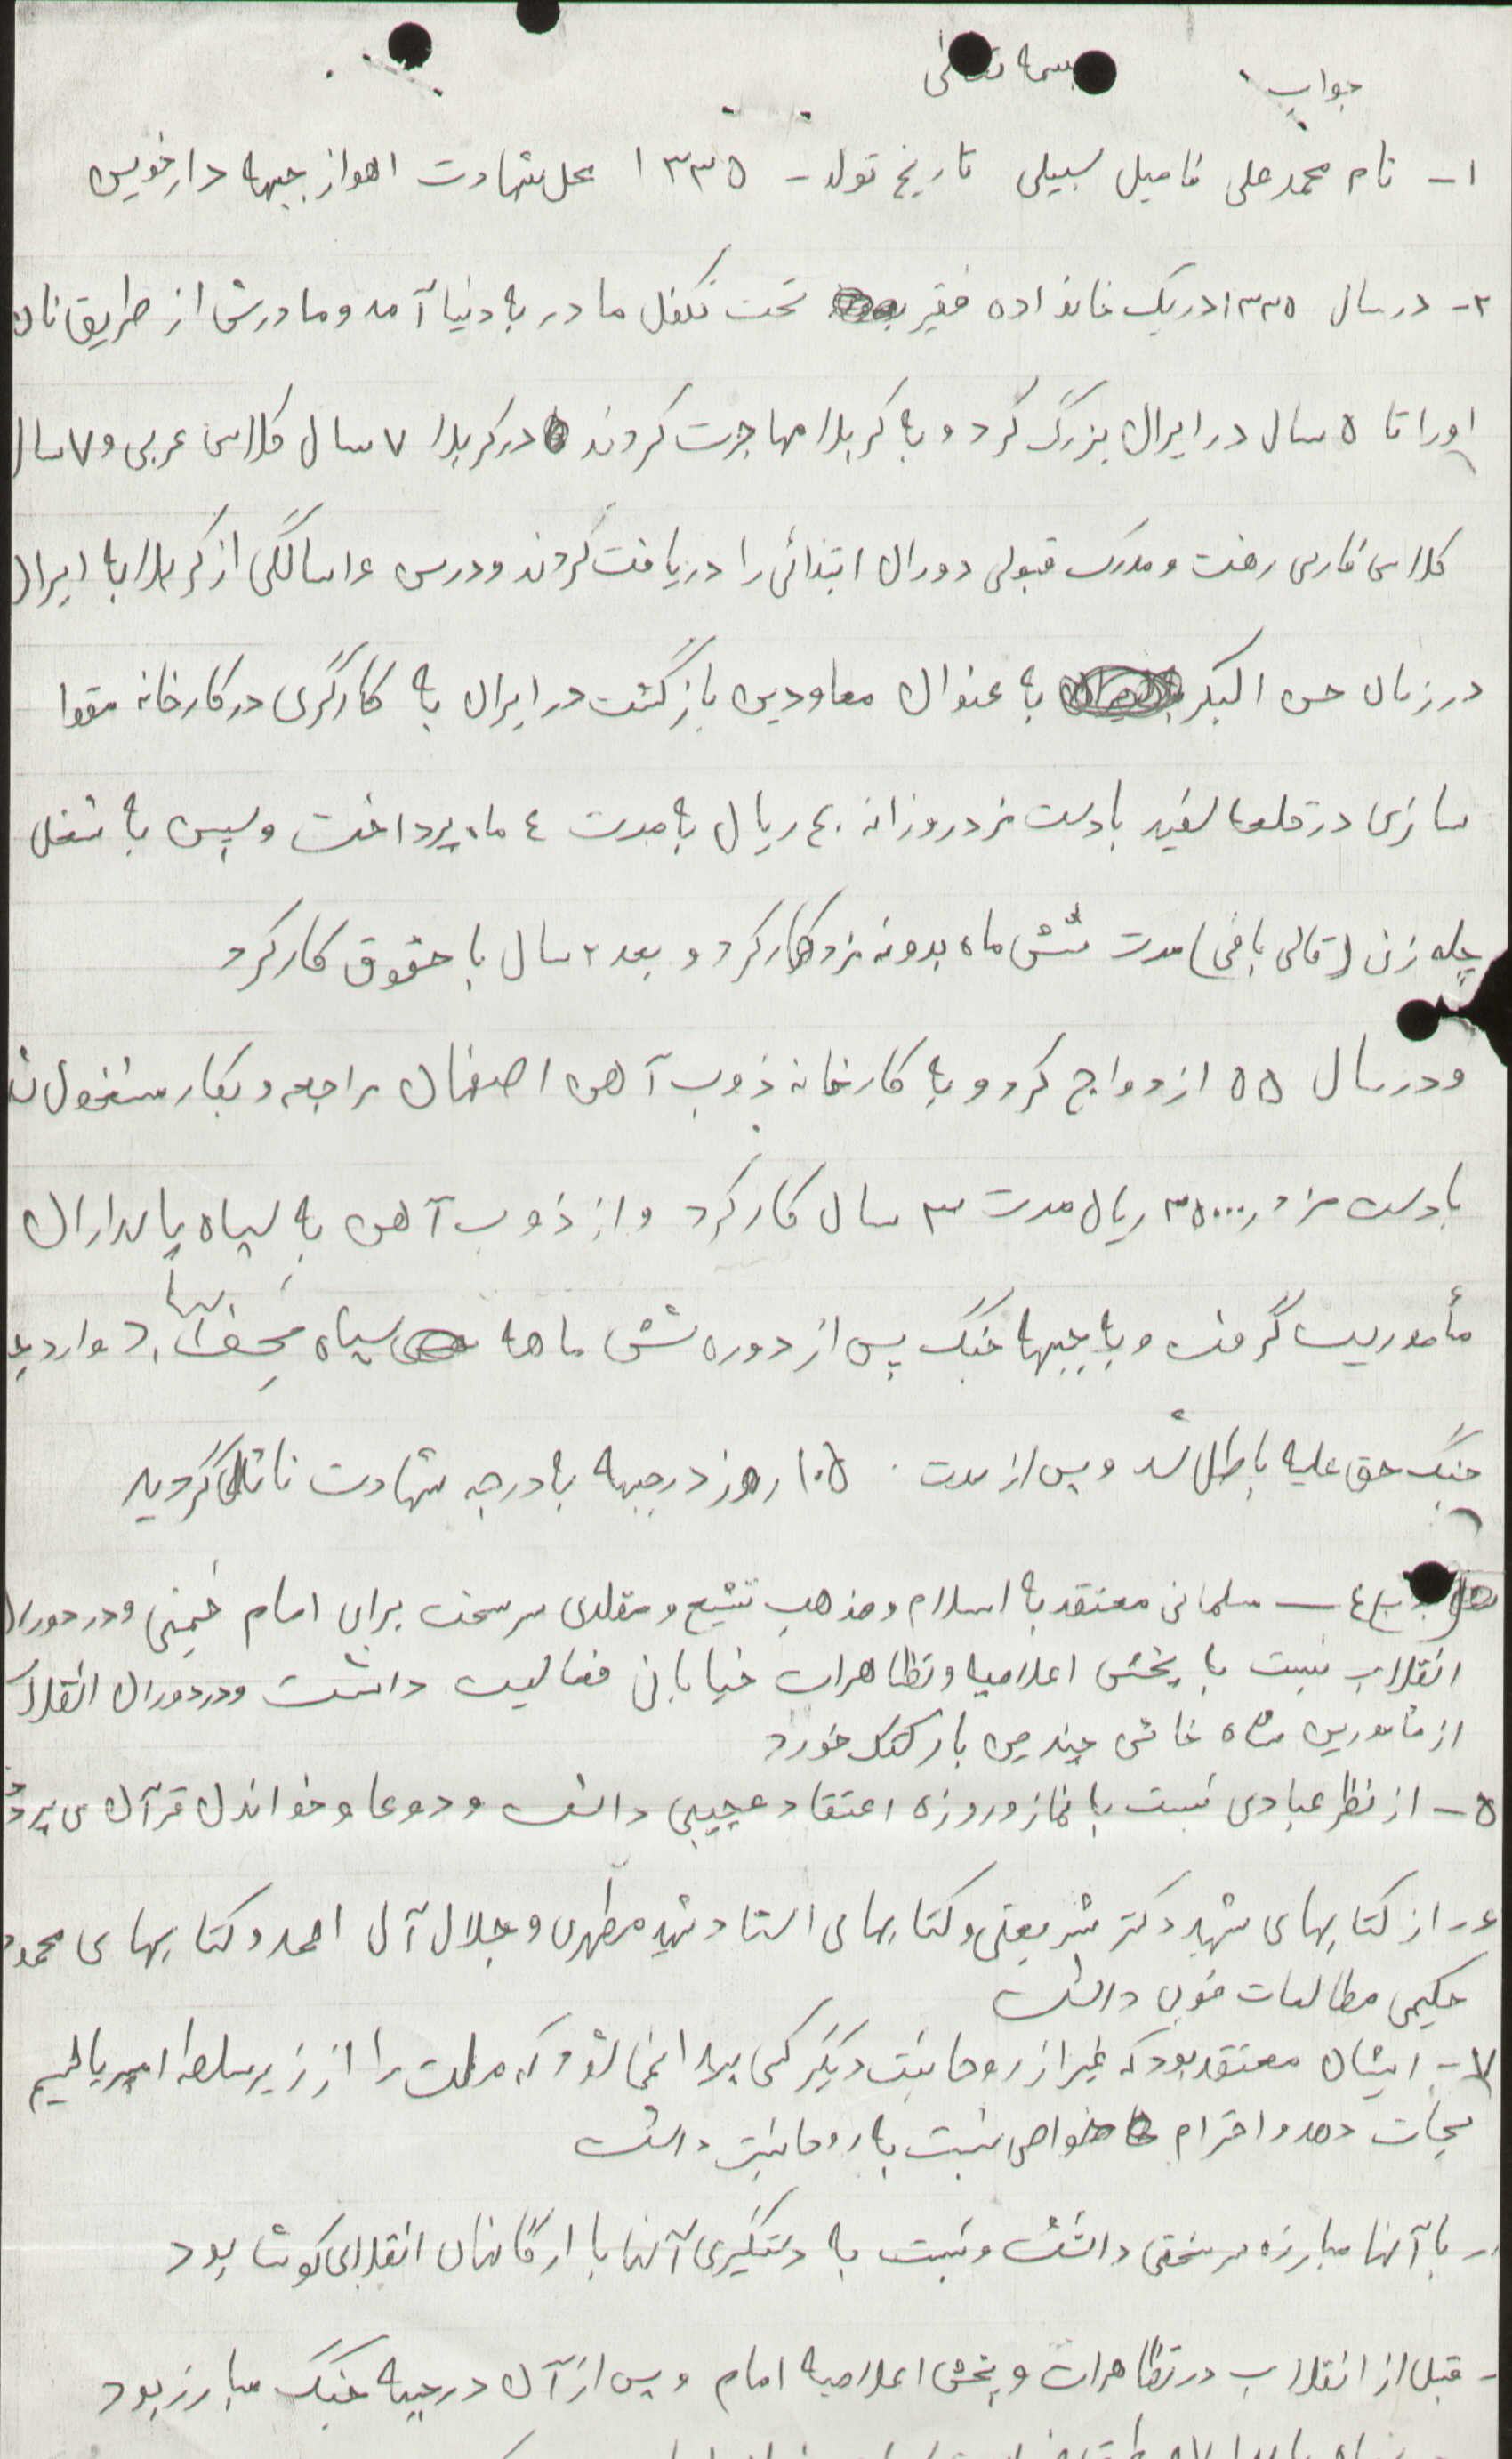 جواب بسمه تعالی
۱- نام محمد علی فامیل سبیلی تاریخ تولد - ۱۳۳۵ محل شهادت اهواز جبهه دارخوین
۲- در سال ۱۳۳۵ در یک خانواده فقیر تحت تکفل مادر به دنیا آمد و مادرش از طریق نان
او را تا ۵ سال در ایران بزرگ کرد و به کربلا مهاجرت کردند در کربلا ۷ سال کلاس عربی و ۷ سال
کلاس فارسی رفت و مدرک قبولی دوران ابتدائی را دریافت کردند و در سن ۱۶ سالگی از کربلا به ایران
در زمان حسن البکر به عنوان معاودین بازگشت در ایران به کارگری در کارخانه مقوا
سازی در قلعه سفید با دست مزد روزانه ۴۰ ریال به مدت ۴ ماه پرداخت و سپس به شغل
چله زنی (قالی بافی) مدت شش ماه بدونه مزد کار کرد و بعد ۲ سال با حقوق کار کرد
و در سال ۵۵ ازدواج کرد و به کارخانه ذوب آهن اصفهان مراجعه و بکار مشغول شد
با دست مزد ۳۵۰۰۰ ریال مدت ۳ سال کار کرد و از ذوب آهن به سپاه پاسداران
مأموریت گرفت و به جبهه جنگ پس از دوره شش ماهه سپاه نجف آباد وارد
جنگ حق علیه باطل شد و پس از مدت ۱۰۵ روز در جبهه به درجه شهادت نائل گردید
۴ - مسلمانی معتقد به اسلام و مذهب تشیع و مقلدی سرسخت برای امام خمینی و در دوران
انقلاب نسبت به پخش اعلامیه و تظاهرات خیابانی فعالیت داشت و در دوران انقلاب
از مامورین شاه خائن چندین بار کتک خورد
۵- از نظر عبادی نسبت به نماز و روزه اعتقاد عجیبی داشت و دوعا و خواندن قرآن می پرد
۶- از کتابهای شهید دکتر شریعتی و کتابهای استاد شهید مطهری و جلال آل احمد و کتابهای محمد
حکیمی مطالعات خوبی داشت
۷- ایشان معتقد بود که غیر از روحانیت دیگر کسی پیدا نمی شود که ملت را از زیر سلطه امپریالیسم
نجات دهد و احترام خواصی نسبت به روحانیت داشت
- با آنها مبارزه سرسختی داشت و نسبت به دستگیری آنها با ارگانهای انقلابی کوشا بود
- قبل از انقلاب در تظاهرات و پخش اعلامیه امام و پس از آن در جبهه جنگ مبارز بود